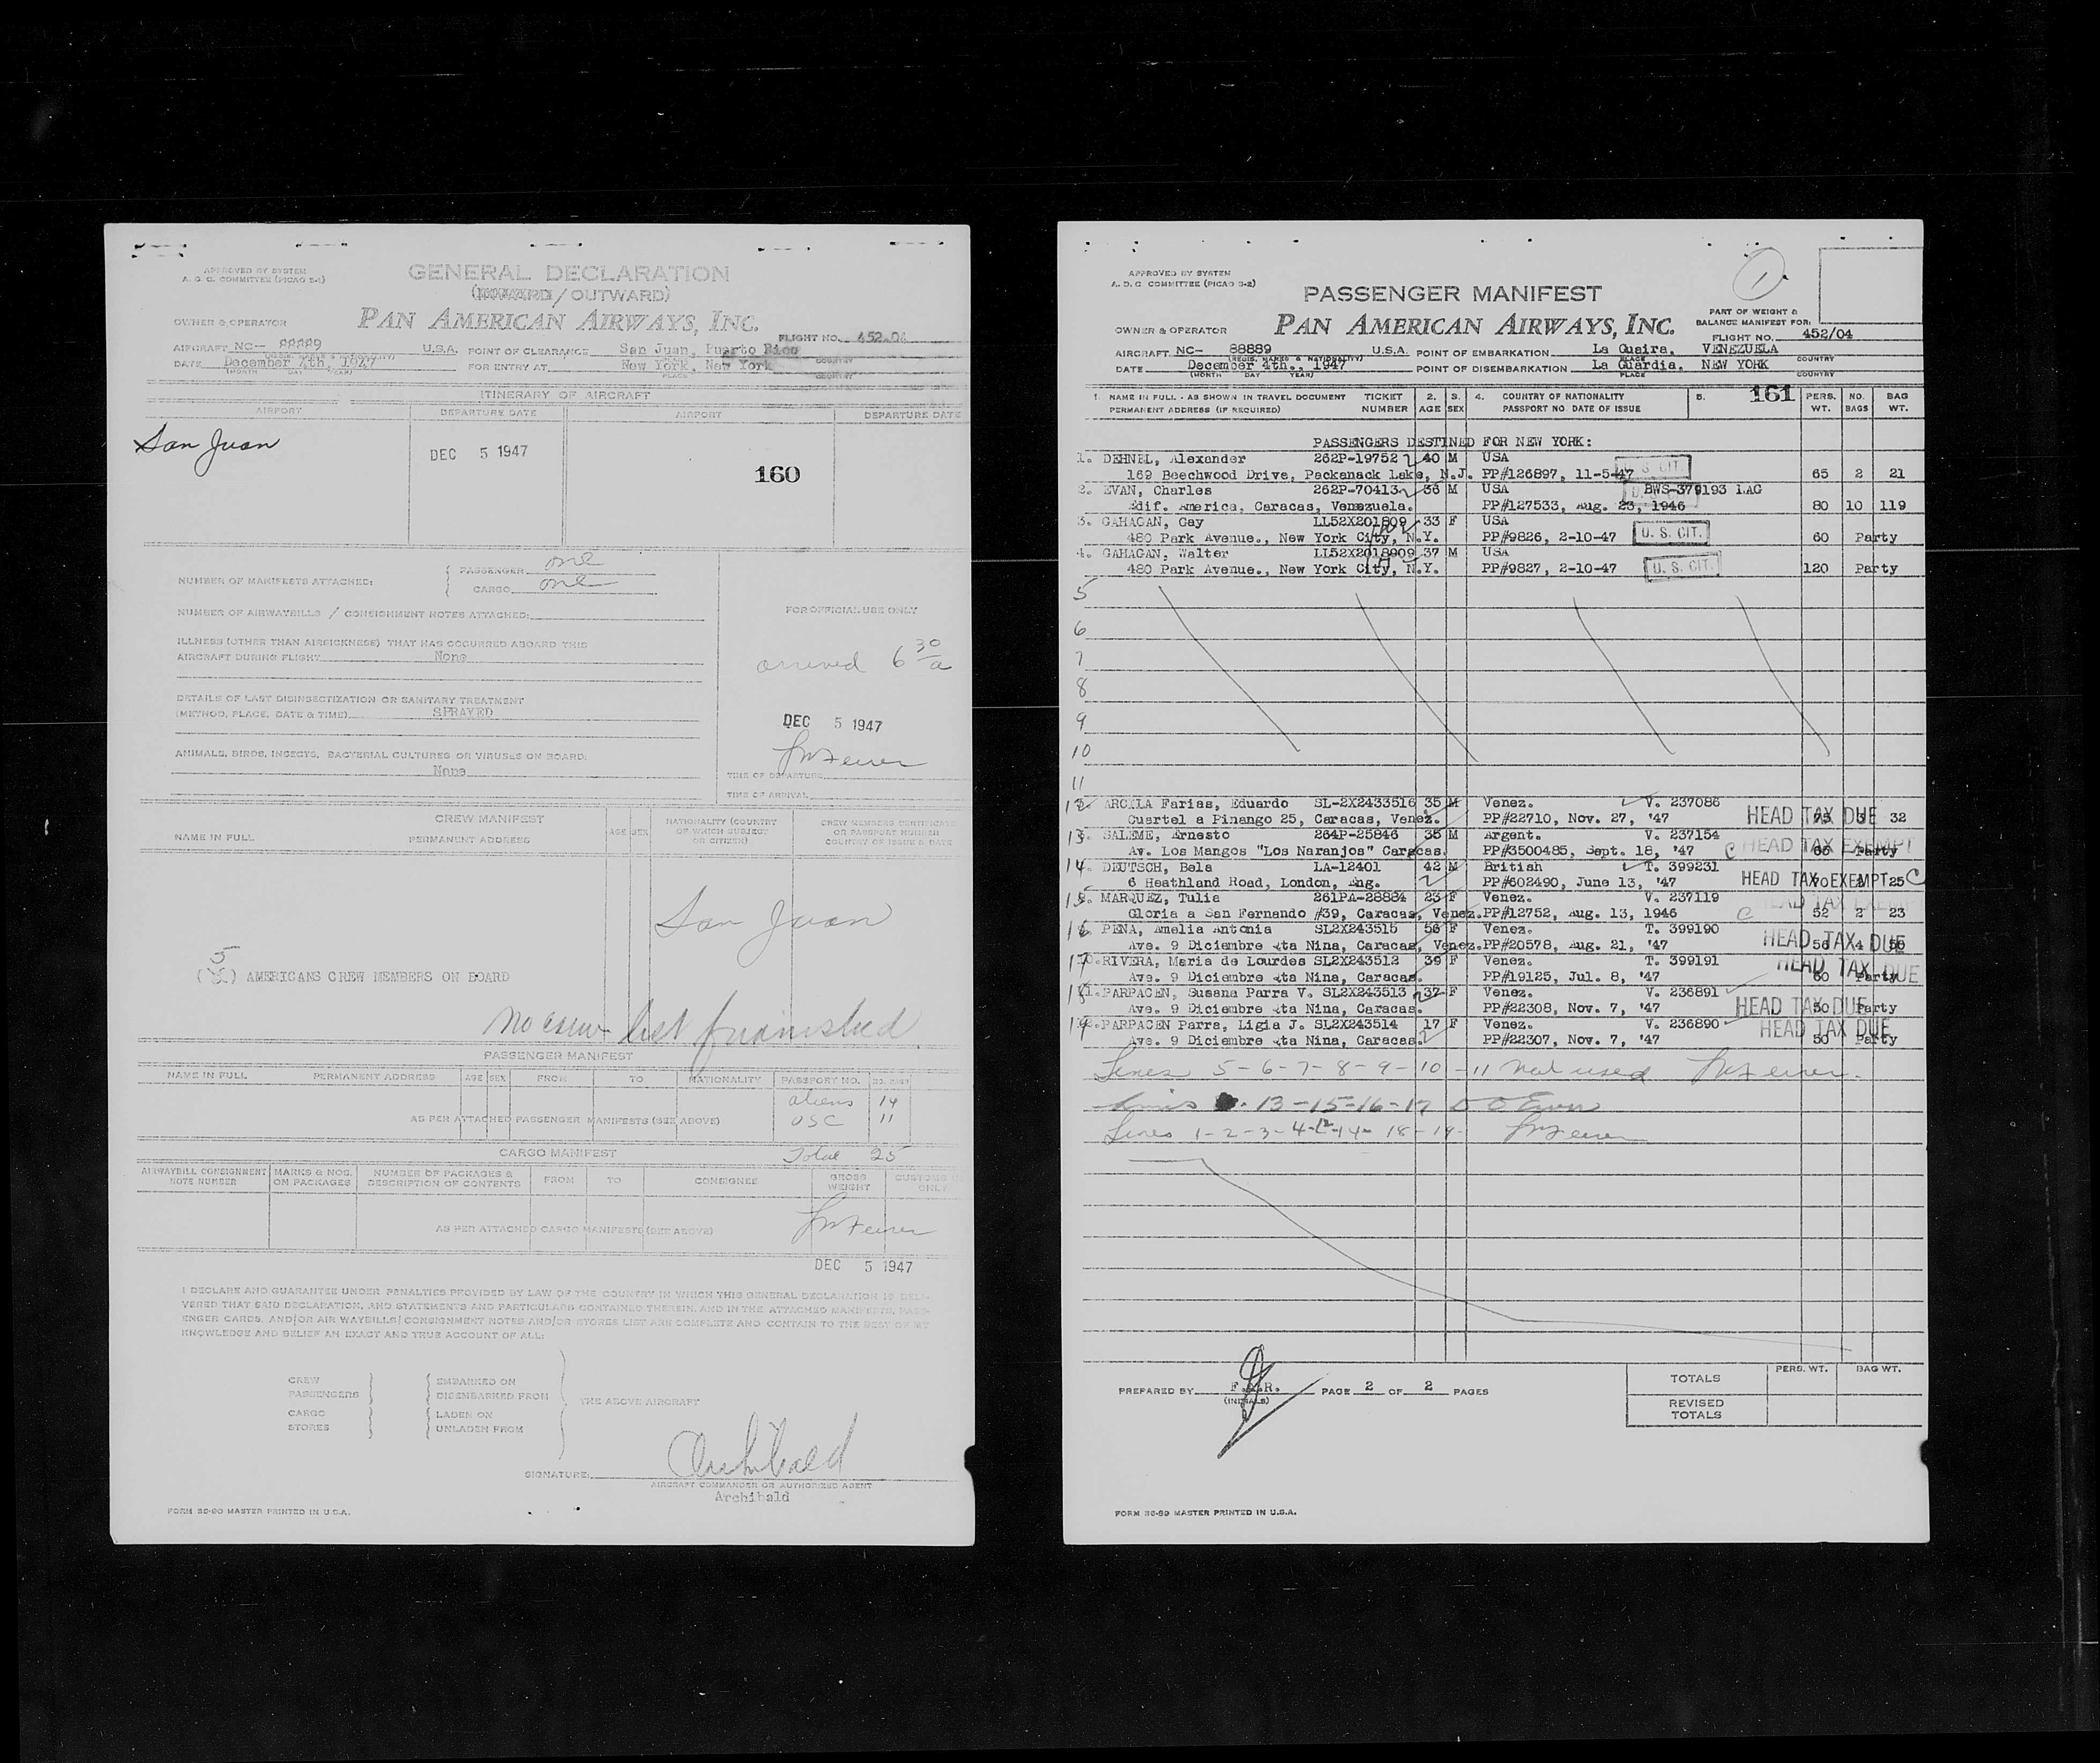 APPROVED BY SYSTEM
A. O. C. COMMITTEE (PICAO 3-1)
GENERAL DECLARATION
(INWARD / OUTWARD)
OWNER & OPERATOR
PAN AMERICAN AIRWAYS, INC.
FLIGHT NO. 452.04
AIRCRAFT NC- 88889 U.S.A. POINT OF CLEARANCE San Juan, Puerto Rico
DATE December 4th, 1947 FOR ENTRY AT New York, New York
(MONTH DAY YEAR) PLACE COUNTRY
ITINERARY OF AIRCRAFT
AIRPORT DEPARTURE DATE AIRPORT DEPARTURE DATE
San Juan
DEC 5 1947
160
NUMBER OF MANIFESTS ATTACHED:
PASSENGER one
CARGO one
NUMBER OF AIRWAYBILLS / CONSIGNMENT NOTES ATTACHED:
ILLNESS (OTHER THAN AIRSICKNESS) THAT HAS OCCURRED ABOARD THIS
AIRCRAFT DURING FLIGHT None
DETAILS OF LAST DISINSECTIZATION OR SANITARY TREATMENT
(METHOD, PLACE, DATE & TIME) SPRAYED
ANIMALS, BIRDS, INSECTS, BACTERIAL CULTURES OR VIRUSES ON BOARD:
None
FOR OFFICIAL USE ONLY
arrived 6 30 a
DEC 5 1947
TIME OF DEPARTURE
TIME OF ARRIVAL
CREW MANIFEST
NAME IN FULL PERMANENT ADDRESS AGE SEX NATIONALITY (COUNTRY OF WHICH SUBJECT OR CITIZEN) CREW MEMBERS CERTIFICATE OR PASSPORT NUMBER COUNTRY OF ISSUE & DATE
San Juan
5
( ) AMERICANS CREW MEMBERS ON BOARD
No crew list furnished
PASSENGER MANIFEST
NAME IN FULL PERMANENT ADDRESS AGE SEX FROM TO NATIONALITY PASSPORT NO.
aliens 14
AS PER ATTACHED PASSENGER MANIFESTS (SEE ABOVE) USC 11
CARGO MANIFEST Total 25
AIRWAYBILL CONSIGNMENT NOTE NUMBER MARKS & NOS. ON PACKAGES NUMBER OF PACKAGES & DESCRIPTION OF CONTENTS FROM TO CONSIGNEE GROSS WEIGHT CUSTOMS ONLY
AS PER ATTACHED CARGO MANIFESTS (SEE ABOVE)
DEC 5 1947
I DECLARE AND GUARANTEE UNDER PENALTIES PROVIDED BY LAW OF THE COUNTRY IN WHICH THIS GENERAL DECLARATION IS DELI-
VERED THAT SAID DECLARATION, AND STATEMENTS AND PARTICULARS CONTAINED THEREIN, AND IN THE ATTACHED MANIFESTS, PASS-
ENGER CARDS, AND/OR AIR WAYBILLS/ CONSIGNMENT NOTES AND/OR STORES LIST ARE COMPLETE AND CONTAIN TO THE BEST OF MY
KNOWLEDGE AND BELIEF AN EXACT AND TRUE ACCOUNT OF ALL:
CREW EMBARKED ON
PASSENGERS DISEMBARKED FROM THE ABOVE AIRCRAFT
CARGO LADEN ON
STORES UNLADEN FROM
SIGNATURE: Archibald
AIRCRAFT COMMANDER OR AUTHORIZED AGENT
Archibald
FORM 36-90 MASTER PRINTED IN U.S.A.
APPROVED BY SYSTEM
A. O. C COMMITTEE (PICAO 3-2)
PASSENGER MANIFEST
1
OWNER & OPERATOR
PAN AMERICAN AIRWAYS, INC.
PART OF WEIGHT &
BALANCE MANIFEST FOR:
FLIGHT NO. 452/04
AIRCRAFT NC- 88889 U.S.A. POINT OF EMBARKATION La Guaira, VENEZUELA
(REGIS. MARKS & NATIONALITY) PLACE COUNTRY
DATE December 4th., 1947 POINT OF DISEMBARKATION La Guardia, NEW YORK
(MONTH DAY YEAR) PLACE COUNTRY
1. NAME IN FULL - AS SHOWN IN TRAVEL DOCUMENT TICKET 2. 3. 4. COUNTRY OF NATIONALITY 5. 161 PERS. NO. BAG
PERMANENT ADDRESS (IF REQUIRED) NUMBER AGE SEX PASSPORT NO DATE OF ISSUE WT. BAGS WT.
PASSENGERS DESTINED FOR NEW YORK:
1. DEHNEL, Alexander 262P-19752 40 M USA
169 Beechwood Drive, Packanack Lake, N.J. PP#126897, 11-5-47 U. S. CIT. 65 2 21
2. EVAN, Charles 262P-70413 36 M USA BWS-379193 LAG
Edif. America, Caracas, Venezuela. PP#127533, Aug. 23, 1946 80 10 119
3. GAHAGAN, Gay LL52X201809 33 F USA
480 Park Avenue., New York City, N.Y. PP#9826, 2-10-47 U. S. CIT. 60 Party
4. GAHAGAN, Walter LL52X2018909 37 M USA
480 Park Avenue., New York City, N.Y. PP#9827, 2-10-47 U. S. CIT. 120 Party
5
6
7
8
9
10
11
12. ARCILA Farias, Eduardo SL-2X2433516 35 M Venez. V. 237086
Cuartel a Pinango 25, Caracas, Venez. PP#22710, Nov. 27, '47 HEAD TAX DUE 32
13. SALEME, Ernesto 264P-25846 35 M Argent. V. 237154
Av. Los Mangos "Los Naranjos" Caracas. PP#3500485, Sept. 18, '47 C HEAD TAX EXEMPT Party
14. DEUTSCH, Bela LA-12401 42 M British T. 399231
6 Heathland Road, London, Eng. PP#602490, June 13, '47 HEAD TAX EXEMPT 25 C
15. MARQUEZ, Tulia 261PA-28884 23 F Venez. V. 237119
Gloria a San Fernando #39, Caracas, Venez. PP#12752, Aug. 13, 1946 C HEAD TAX EXEMPT 52 2 23
16. PENA, Amelia Antonia SL2X243515 56 F Venez. T. 399190
Ave. 9 Diciembre Qta Nina, Caracas, Venez. PP#20578, Aug. 21, '47 HEAD TAX DUE 56 4
17. RIVERA, Maria de Lourdes SL2X243512 39 F Venez. T. 399191
Ave. 9 Diciembre Qta Nina, Caracas. PP#19125, Jul. 8, '47 HEAD TAX DUE 60 Party
18. PARPACEN, Susana Parra V. SL2X243513 37 F Venez. V. 236891
Ave. 9 Diciembre Qta Nina, Caracas. PP#22308, Nov. 7, '47 HEAD TAX DUE 50 Party
19. PARPACEN Parra, Ligia J. SL2X243514 17 F Venez. V. 236890
Ave. 9 Diciembre Qta Nina, Caracas. PP#22307, Nov. 7, '47 HEAD TAX DUE 50 Party
Lines 5-6-7-8-9-10-11 not used
Lines 13-15-16-17
Lines 1-2-3-4-12-14-18-19-
PREPARED BY F.A.R. PAGE 2 OF 2 PAGES
(INITIALS)
PERS. WT. BAG WT.
TOTALS
REVISED
TOTALS
FORM 36-89 MASTER PRINTED IN U.S.A.